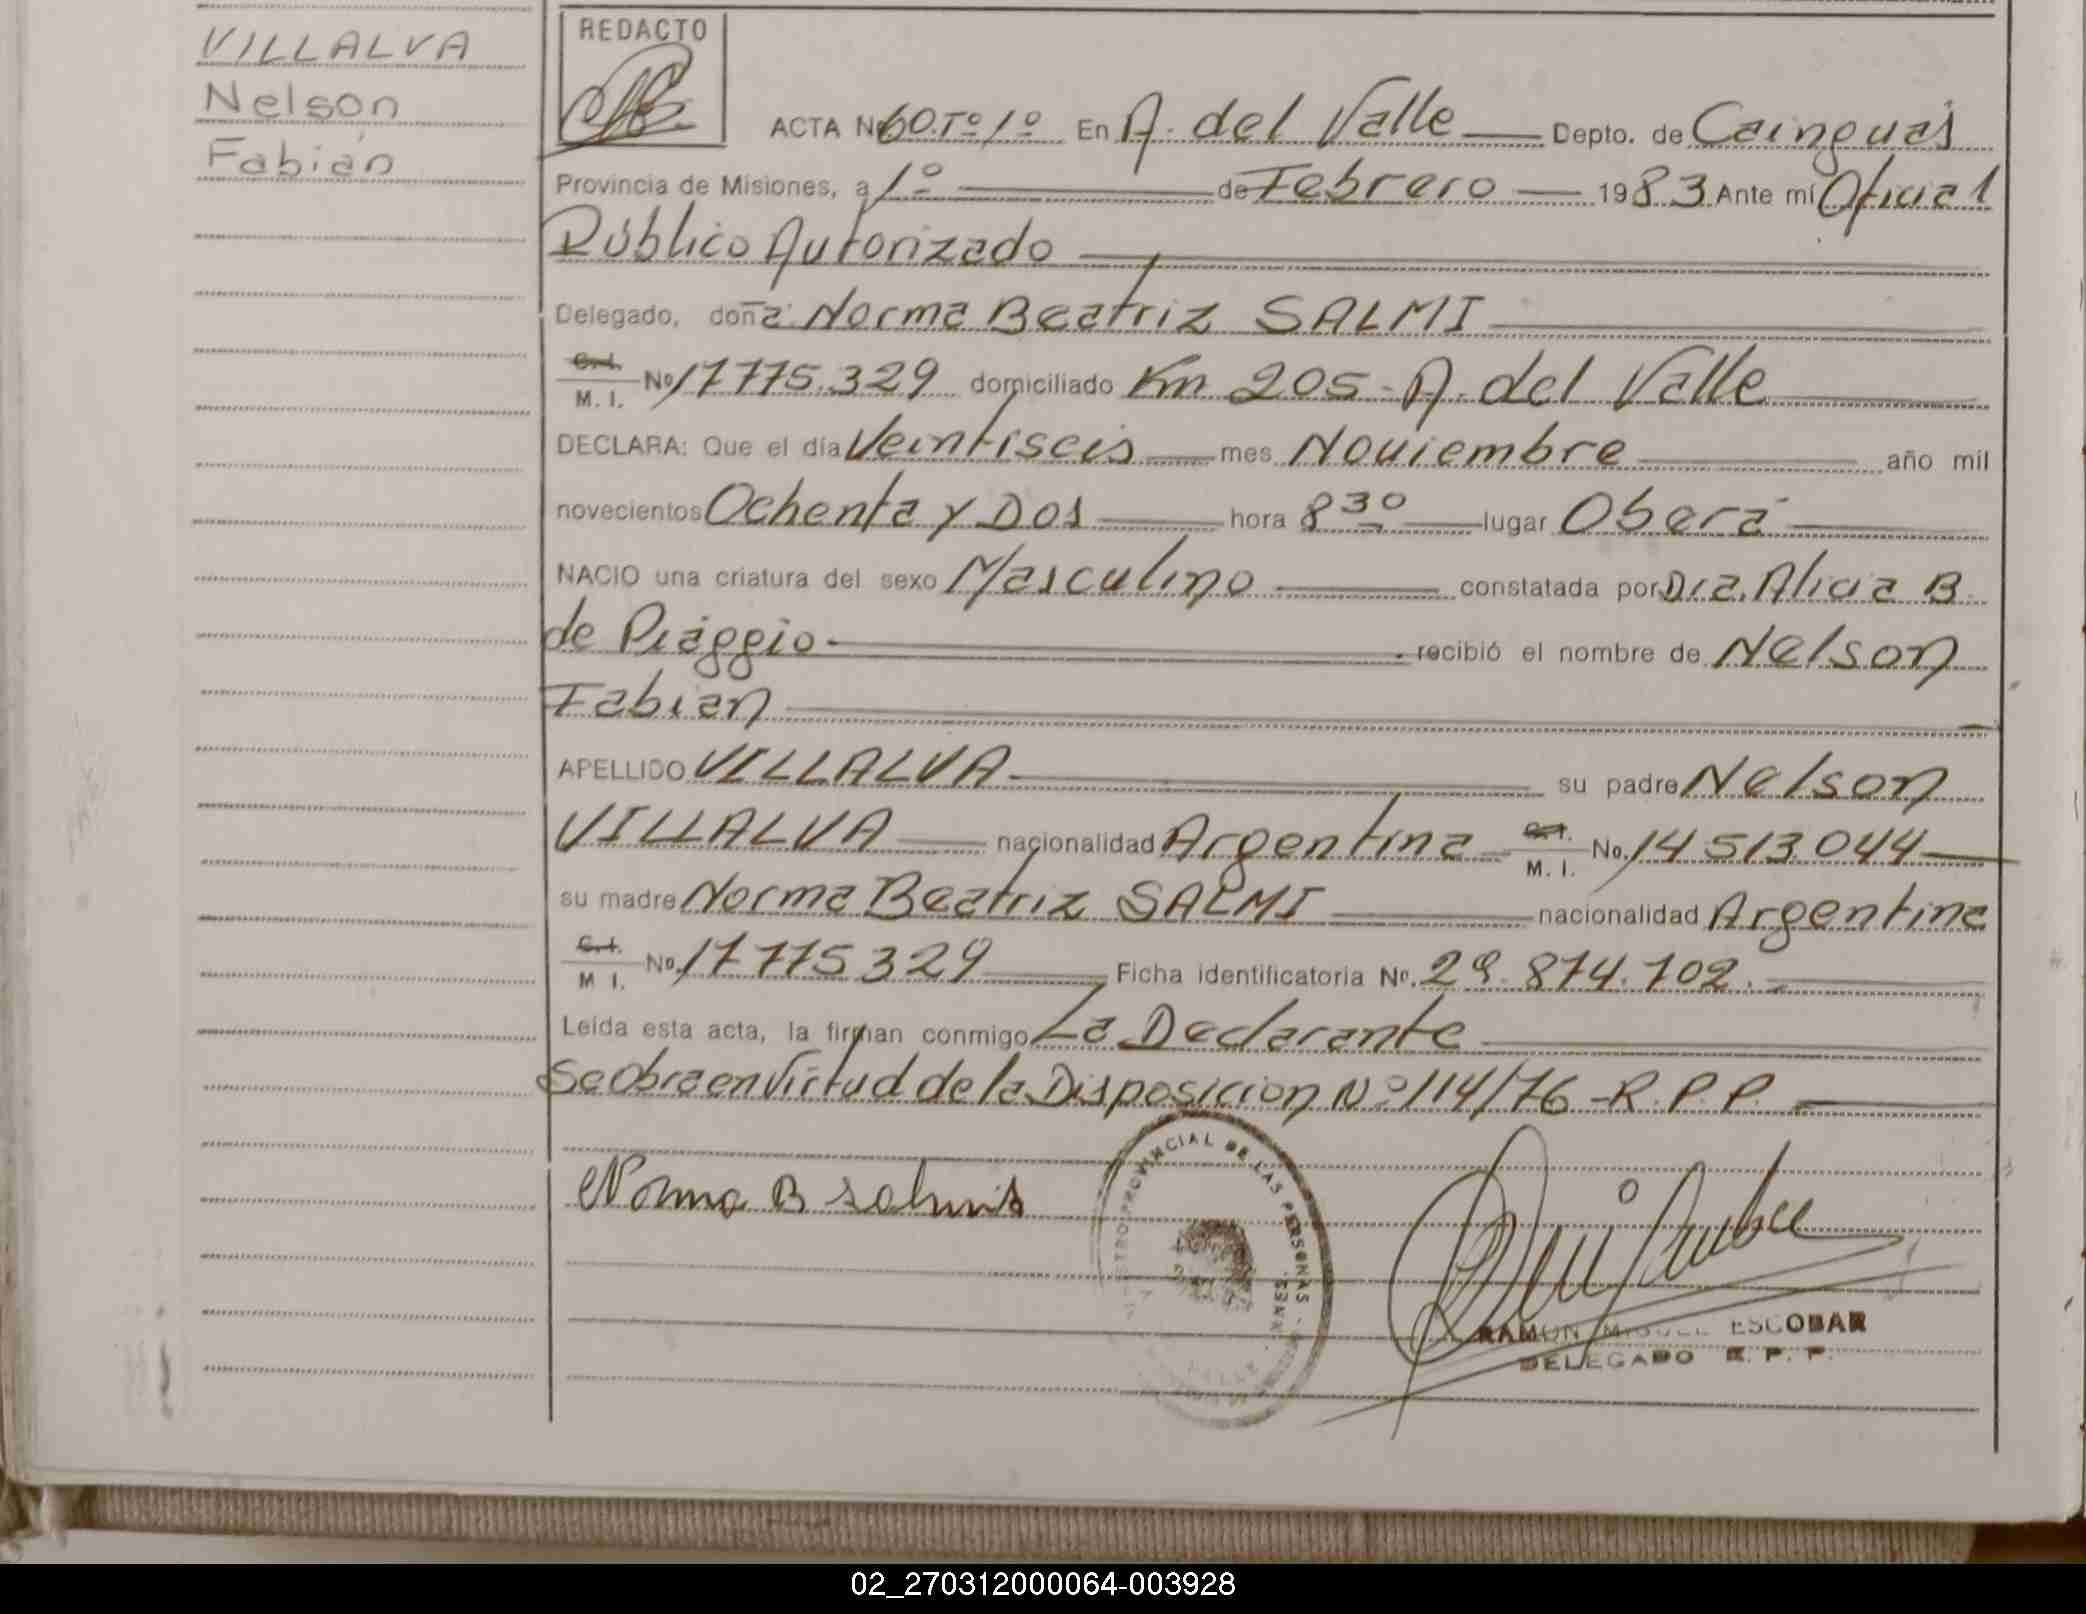 VILLALVA
Nelson
Fabián
REDACTO
ACTA Nº 60.Tº 1º En A. del Valle Depto. de Cainguás
Provincia de Misiones, a 1º de Febrero 1983 Ante mí Oficial
Público Autorizado
Delegado, doña Norma Beatriz SALMI
C.I.
M. I. Nº 17775.329 domiciliado Km 205 - A. del Valle
DECLARA: Que el día Veintiseis mes Noviembre año mil
novecientos Ochenta y Dos hora 8 30 lugar Oberá
NACIO una criatura del sexo Masculino constatada por Dra. Alicia B.
de Piaggio recibió el nombre de Nelson
Fabian
APELLIDO VILLALVA su padre Nelson
VILLALVA nacionalidad Argentina C.I.
M. I. No. 14 513.044
su madre Norma Beatriz SALMI nacionalidad Argentina
C.I.
M I. No. 17775329 Ficha identificatoria Nº. 29.874.702.
Leída esta acta, la firman conmigo La Declarante
Se Obra en Virtud de la Disposicion Nº 114/76 - R.P.P.
Norma B
PROVINCIAL DE LAS PERSONAS
RAMON MIGUEL ESCOBAR
DELEGADO R. P. P.
02_270312000064-003928